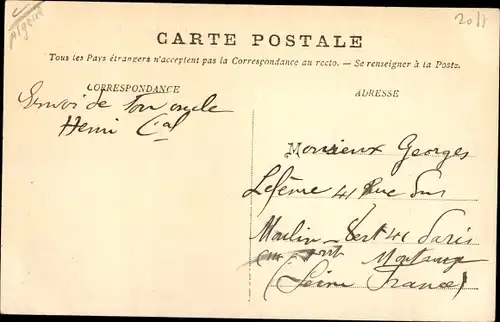 Algérie
2011
CARTE POSTALE
Tous les Pays étrangers n'acceptent pas la Correspondance au recto. — Se renseigner à la Poste.
CORRESPONDANCE
ADRESSE
Envoi de ton oncle
Henri
Monsieur Georges
41 Rue du
Moulin - Vert 41 Paris
(Seine France)